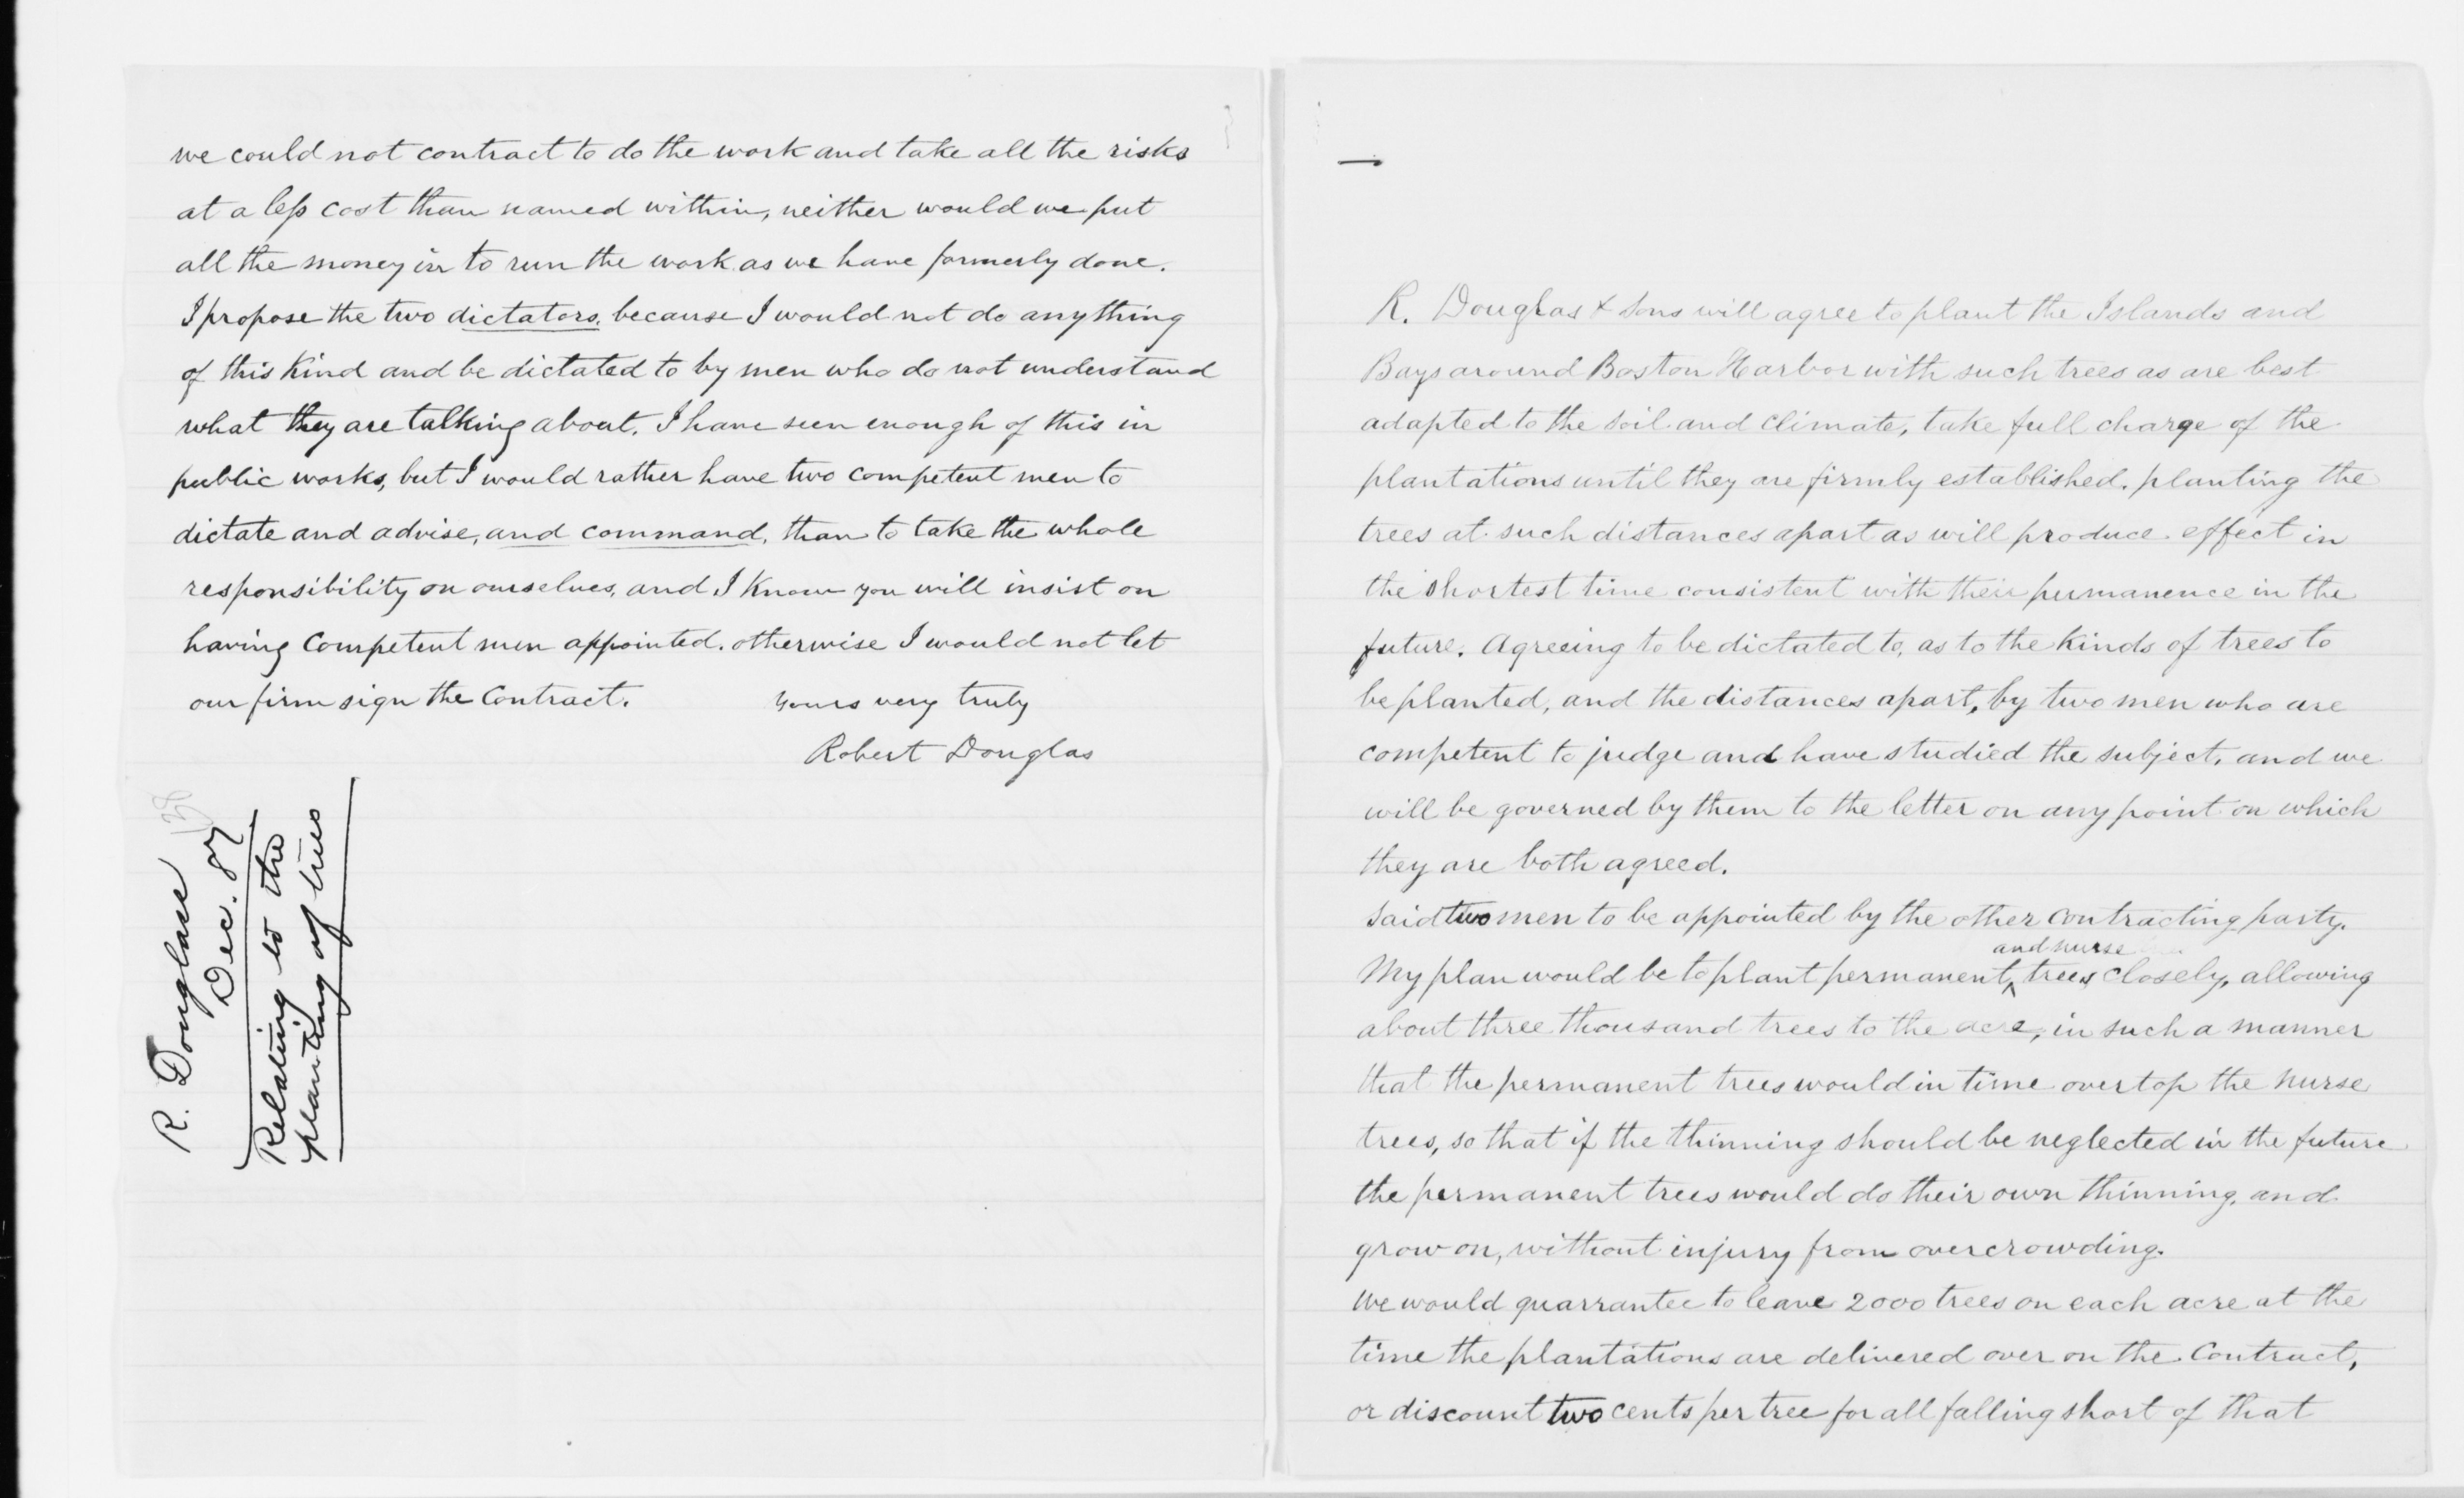 we could not contract to do the work and take all the risks
at a less cost than named within, neither would we put
all the money in to run the work as we have formerly done.
I propose the two dictators, because I would not do anything
of this kind and be dictated to by men who do not understand
what they are talking about. I have seen enough of this in
public works, but I would rather have two competent men to
dictate and advise, and command, than to take the whole
responsibility on ourselves, and I know you will insist on
having competent men appointed. otherwise I would not let
our firm sign the Contract.
Yours very truly
Robert Douglas
R. Douglass
Dec. 87
Relating to the
planting of trees
R. Douglas & Sons will agree to plant the Islands and
Bays around Boston Harbor with such trees as are best
adapted to the soil and climate, take full charge of the
plantations until they are firmly established. planting the
trees at such distances apart as will produce effect in
the shortest time consistent with their permanence in the
future. Agreeing to be dictated to, as to the kinds of trees to
be planted, and the distances apart, by two men who are
competent to judge and have studied the subject, and we
will be governed by them to the letter on any point on which
they are both agreed.
Said two men to be appointed by the other contracting party.
and nurse
My plan would be to plant permanent ^ trees closely, allowing
about three thousand trees to the acre, in such a manner
that the permanent trees would in time overtop the nurse
trees, so that if the thinning should be neglected in the future
the permanent trees would do their own thinning, and
grow on, without injury from overcrowding.
We would guarrantee to leave 2000 trees on each acre at the
time the plantations are delivered over on the Contract,
or discount two cents per tree for all falling short of that